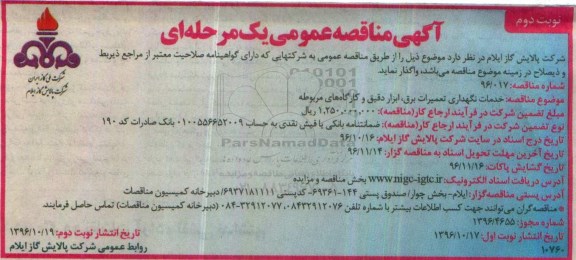 نوبت دوم
آگهی مناقصه عمومی یک مرحله‌ای
شرکت ملی گاز ایران
شرکت پالایش گاز ایلام
شرکت پالایش گاز ایلام در نظر دارد موضوع ذیل را از طریق مناقصه عمومی به شرکتهایی که دارای گواهینامه صلاحیت معتبر از مراجع ذیربط
و ذیصلاح در زمینه موضوع مناقصه می‌باشد، واگذار نماید
شماره مناقصه: ۹۶/۰۱۷
موضوع مناقصه: خدمات نگهداری تعمیرات برق، ابزار دقیق و کارگاههای مربوطه
مبلغ تضمین شرکت در فرآیند ارجاع کار(مناقصه): ۱,۲۵۰,۰۰۰,۰۰۰ ریال
نوع تضمین شرکت در فرآیند ارجاع کار(مناقصه): ضمانتنامه بانکی یا فیش نقدی به حساب ۰۱۰۰۵۵۶۶۵۲۰۰۹ بانک صادرات کد ۱۹۰
تاریخ درج اسناد در سایت شرکت پالایش گاز ایلام: ۹۶/۱۰/۱۶
تاریخ آخرین مهلت تحویل اسناد به مناقصه گزار: ۹۶/۱۱/۱۴
تاریخ گشایش پاکات: ۹۶/۱۱/۱۶
آدرس دریافت اسناد الکترونیک: www.nigc-igtc.ir بخش مناقصه و مزایده
آدرس پستی مناقصه‌گزار: ایلام- بخش چوار/ صندوق پستی ۱۴۴-۶۹۳۶۱- کدپستی ۶۹۳۷۱۸۱۱۱۱/ دبیرخانه کمیسیون مناقصات
* مناقصه‌گران می‌توانند جهت کسب اطلاعات بیشتر با شماره تلفن ۰۸۴۳۲۹۱۲۰۷۶ و ۰۸۴-۳۲۹۱۲۰۷۷ (دبیرخانه کمیسیون مناقصات) تماس حاصل فرمایند
شماره مجوز: ۱۳۹۶/۴۶۵۵
تاریخ انتشار نوبت اول: ۱۳۹۶/۱۰/۱۷
تاریخ انتشار نوبت دوم: ۱۳۹۶/۱۰/۱۹
۱۰۷۶۰
روابط عمومی شرکت پالایش گاز ایلام
ParsNamadData